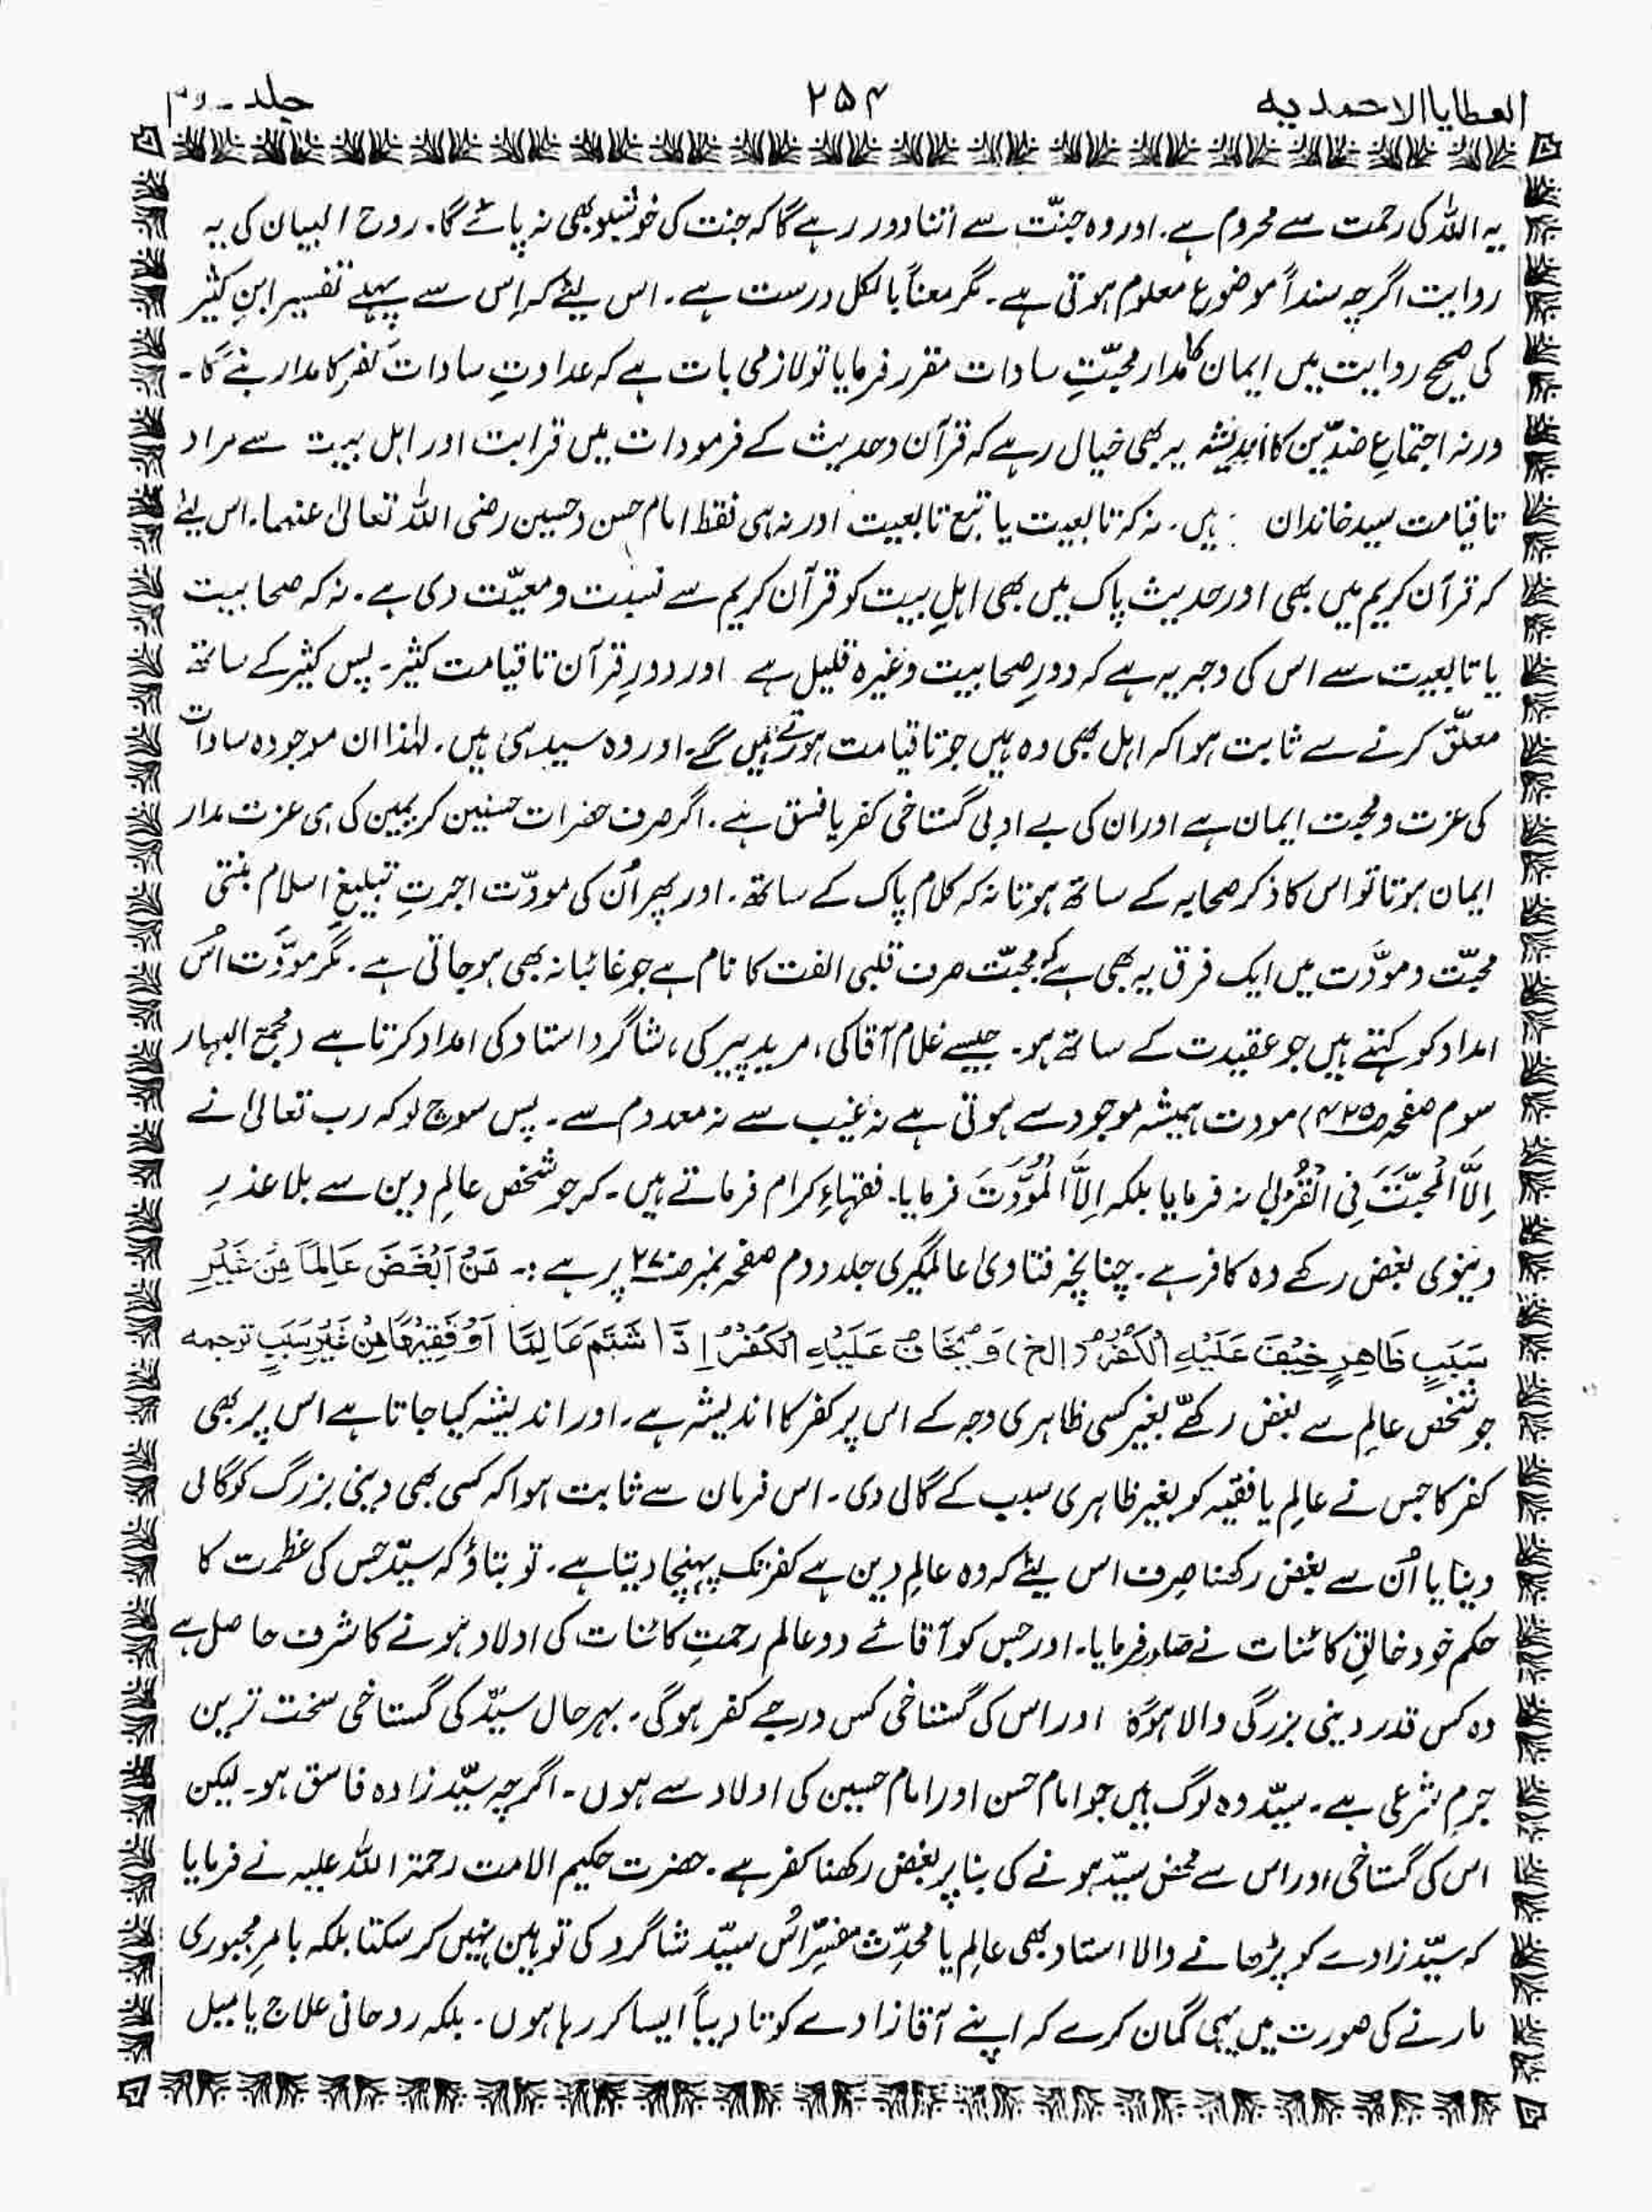 العطایا الاحمدیه
۲۵۴
جلد دوم
یہ اللہ کی رحمت سے محروم ہے۔ اور وہ جنّت سے اتنا دور رہے گا کہ جنت کی خوشبو بھی نہ پائے گا۔ روح البیان کی یہ
روایت اگرچہ سنداً موضوع معلوم ہوتی ہے۔ مگر معناً بالکل درست ہے۔ اس لیئے کہ اِس سے پہلے تفسیر ابنِ کثیر
کی صحیح روایت میں ایمان کا مدار محبّتِ سادات مقرر فرمایا تو لازمی بات ہے کہ عداوتِ سادات کفر کا مدار بنے گا۔
ورنہ اجتماعِ ضدّین کا اندیشہ یہ بھی خیال رہے کہ قرآن و حدیث کے فرمودات میں قرابت اور اہل بیت سے مراد
تا قیامت سید خاندان ہیں۔ نہ کہ تابعیت یا تبع تابعیت اور نہ ہی فقط امام حسن و حسین رضی اللہ تعالیٰ عنہما۔ اس لیئے
کہ قرآن کریم میں بھی اور حدیث پاک میں بھی اہلِ بیت کو قرآن کریم سے نسبت و معیّت دی ہے۔ نہ کہ صحابیت
یا تابعیت سے اس کی وجہ یہ ہے کہ دورِ صحابیت وغیرہ قلیل ہے اور دورِ قرآن تا قیامت کثیر۔ پس کثیر کے ساتھ
معلّق کرنے سے ثابت ہوا کہ اہل بھی وہ ہیں جو تا قیامت ہوتے رہیں گے۔ اور وہ سید ہی ہیں۔ لہٰذا ان موجودہ سادات
کی عزت و محبت ایمان ہے اور ان کی بے ادبی گستاخی کفر یا فسق ہے۔ اگر صرف حضرات حسنین کریمین کی ہی عزت مدار
ایمان ہوتا تو اس کا ذکر صحابہ کے ساتھ ہوتا نہ کہ کلام پاک کے ساتھ۔ اور پھر اُن کی مودّت اجرتِ تبلیغِ اسلام بنتی
محبّت و مودَّت میں ایک فرق یہ بھی ہے کہ محبّت صرف قلبی الفت کا نام ہے جو غائبانہ بھی ہو جاتی ہے۔ مگر مودَّت اُس
امداد کو کہتے ہیں جو عقیدت کے ساتھ ہو۔ جیسے غلام آقا کی، مرید پیر کی، شاگرد استاد کی امداد کرتا ہے (مجمع البہار
سوم صفحہ ۴۲۵) مودت ہمیشہ موجود سے ہوتی ہے نہ غیب سے نہ معدوم سے۔ پس سوچ لو کہ رب تعالیٰ نے
اِلَّا الْمُحَبَّتَ فِی الْقُرْبٰی نہ فرمایا بلکہ اِلَّا الْمُوَدَّتَ فرمایا۔ فقہاءِ کرام فرماتے ہیں۔ کہ جو شخص عالِمِ دین سے بلا عذرِ
دینوی بغض رکھے وہ کافر ہے۔ چنانچہ فتاویٰ عالمگیری جلد دوم صفحہ نمبر ۲۷۰ پر ہے :۔ مَنْ اَبْغَضَ عَالِمًا مِنْ غَیْرِ
سَبَبٍ ظَاهِرٍ خِیْفَ عَلَیْهِ الْکُفْرُ (الخ) وَ یُخَافُ عَلَیْهِ الْکُفْرُ اِذَا شَتَمَ عَالِمًا اَوْ فَقِیْهًا مِنْ غَیْرِ سَبَبٍ ترجمہ
جو شخص عالِم سے بغض رکھے بغیر کسی ظاہری وجہ کے اس پر کفر کا اندیشہ ہے۔ اور اندیشہ کیا جاتا ہے اس پر بھی
کفر کا جس نے عالِم یا فقیہ کو بغیر ظاہری سبب کے گالی دی۔ اس فرمان سے ثابت ہوا کہ کسی بھی دینی بزرگ کو گالی
دینا یا اُن سے بغض رکھنا صِرف اس لیئے کہ وہ عالمِ دین ہے کفر تک پہنچا دیتا ہے۔ تو بتاؤ کہ سیّد جس کی عظمت کا
حکم خود خالقِ کائنات نے صادر فرمایا۔ اور جس کو آقائے دو عالم رحمتِ کائنات کی اولاد ہونے کا شرف حاصل ہے
وہ کس قدر دینی بزرگی والا ہوگا اور اس کی گستاخی کس درجے کفر ہوگی۔ بہر حال سیّد کی گستاخی سخت ترین
جرمِ شرعی ہے۔ سیّد وہ لوگ ہیں جو امام حسن اور امام حسین کی اولاد سے ہوں۔ اگرچہ سیّد زادہ فاسق ہو۔ لیکن
اس کی گستاخی اور اس سے محض سیّد ہونے کی بنا پر بغض رکھنا کفر ہے۔ حضرت حکیم الامت رحمۃ اللہ علیہ نے فرمایا
کہ سیّد زادے کو پڑھانے والا استاد بھی عالِم یا محدِّث مفسِّر اُس سیّد شاگرد کی توہین نہیں کر سکتا بلکہ بامرِ مجبوری
مارنے کی صورت میں یہی گمان کرے کہ اپنے آقا زادے کو تادیباً ایسا کر رہا ہوں۔ بلکہ روحانی علاج یا میل